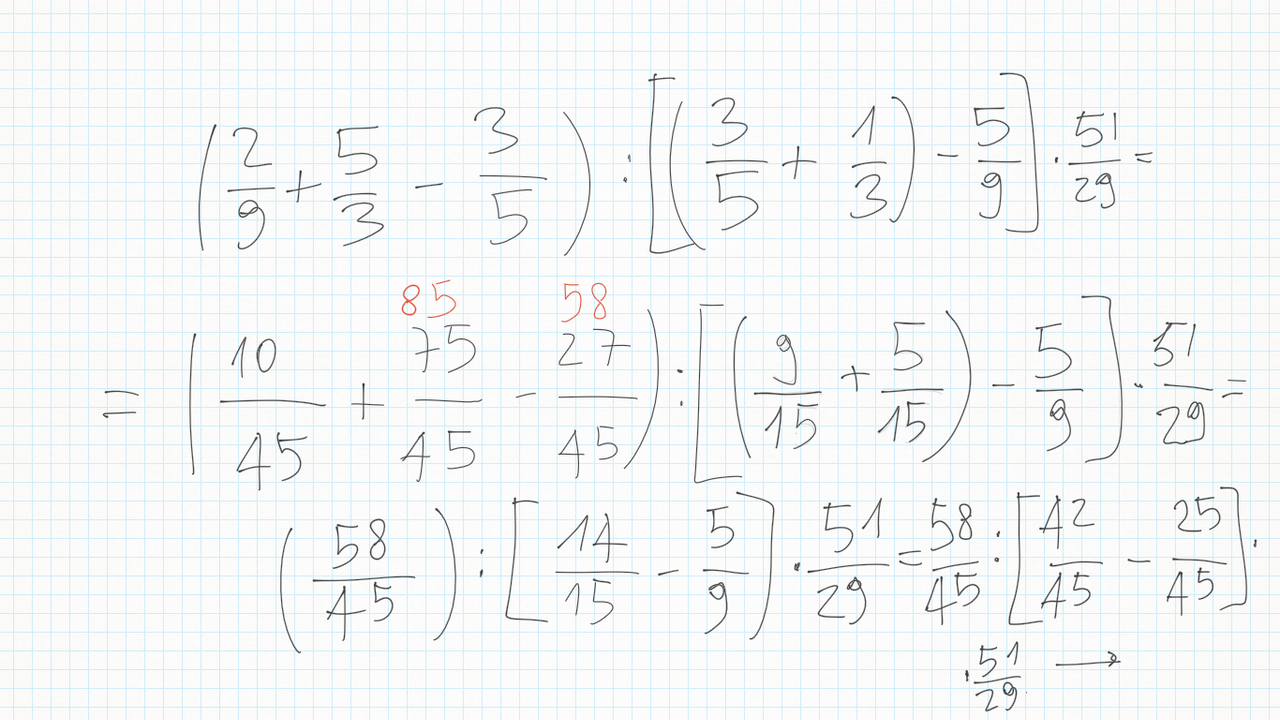 (2/9 + 5/3 - 3/5) : [(3/5 + 1/3) - 5/9] · 51/29 =
85 58
= (10/45 + 75/45 - 27/45) : [(9/15 + 5/15) - 5/9] · 51/29 =
(58/45) : [14/15 - 5/9] · 51/29 = 58/45 : [42/45 - 25/45] ·
· 51/29 →